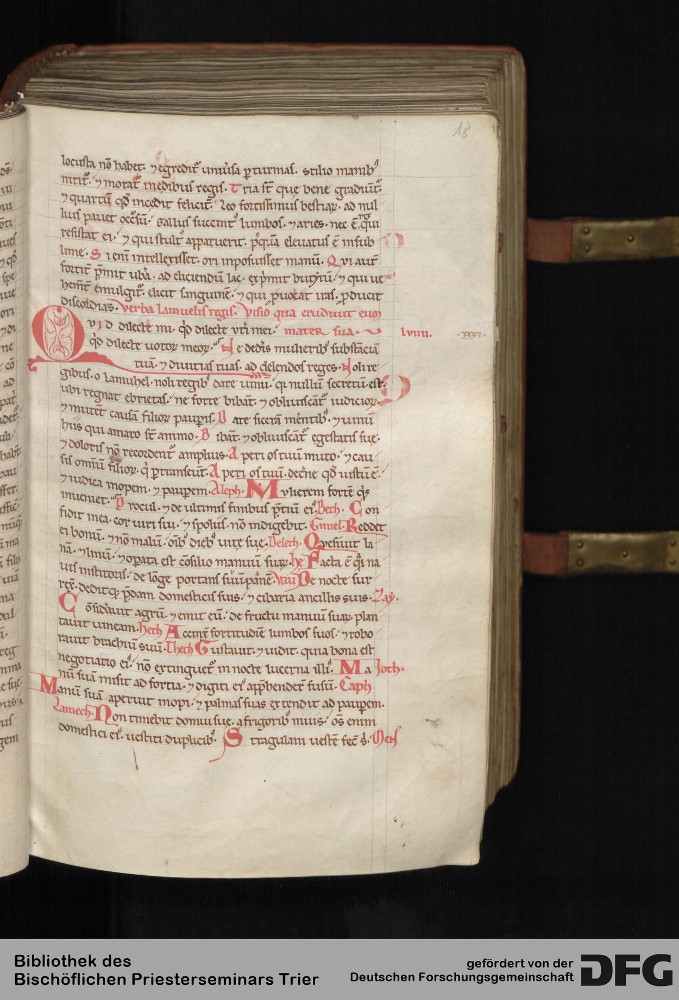 18
locusta nō habet. ⁊ egredit͛ uniu͛sa p turmas. stilio manib⁹
nitit͛. ⁊ morat͛ in edibus regis. Tria st̄ que bene gradiūt͛.
⁊ quartū qd̄ incedit felicit͛. Leo fortissimus bestiaꝝ. ad nul
lius pauet occ͛sū. Gallus succinct⁹ lumbos. ⁊ aries. nec ē rex qui
resistat ei. ⁊ qui stult⁹ apparuerit. pꝰquā eleuatus ē in sub
lime. Si eni intellexisset. ori imposuisset manū. Qui aut̄
fortit͛ p̄mit ub͛a. ad eliciendū lac. exp̄mit butyrū. ⁊ qui ue
hem̄t͛ emulgit. elicit sanguinē. ⁊ qui ꝓuocat iras. ꝓducit
discordias. Verba lamuelis regis. Visio qua erudiuit eum
QVID dilecte mi. qd̄ dilecte ut͛i mei. mater sua. lviiii.
qd̄ dilecte uotoꝝ meoꝝ. Ne dedis mulierib⁹ substātiā
tuā. ⁊ diuitias tuas. ad delendos reges. Noli re
gibus. o lamuhel. noli regib⁹ dare uinū. qꝛ nullū secretū est.
ubi regnat ebrietas. ne forte bibāt. ⁊ obliuiscāt͛ iudicioꝝ.
⁊ mutēt causā filioꝝ paupis. Date sicerā merentib⁹. ⁊ uinū
hiis qui amaro st̄ animo. Bibāt. ⁊ obliuiscāt͛ egestatis sue.
⁊ doloris nō recordent͛ amplius. Aperi os tuū muto. ⁊ cau
sis omniū filioꝝ. qi ptranseūt. Aperi os tuū. decne qd̄ iustū ē.
⁊ iudica inopem. ⁊ paupem. Aleph. Mulierem fortē q̓s
inueniet. Procul. ⁊ de ultimis finibus p̄tiū ei⁹. Beth. Con
fidit in ea. cor uiri sui. ⁊ spoliis. nō indigebit. Gimel. Reddet
ei bonū. ⁊ nō malū. om̄ib⁹ dieb⁹ uite sue. Delech. Quesiuit la
nā. ⁊ linū. ⁊ opata est cōsilio manuū suaꝝ. he Facta ē q̓ na
uis institoris. de lōge portans suū panē. Vau De nocte sur
rex͛. deditq; p̄dam domesticis suis. ⁊ cibaria ancillis suis. Zay.
Cōsid͛auit agrū. ⁊ emit eū. de fructu manuū suaꝝ. plan
tauit uineam. Heth Accinx͛ fortitudine lumbos suos. ⁊ robo
rauit brachiū suū. Theth Gustauit. ⁊ uidit. quia bona est
negotiatio ei⁹. nō extinguet͛ in nocte lucerna illi⁹. Ma Joth.
nū suā misit ad fortia. ⁊ digiti ei⁹ app̄hender̄ fusū. Caph
Manū suā aperuit inopi. ⁊ palmas suas extendit ad paupem.
Lamech. Non timebit domui sue. a frigorib⁹ niuis. om̄s enim
domestici ei⁹. uestiti duplicib⁹. Stragulam uestē fec̄ s͛. Mem
Bibliothek des
Bischöflichen Priesterseminars Trier
gefördert von der
Deutschen Forschungsgemeinschaft
DFG